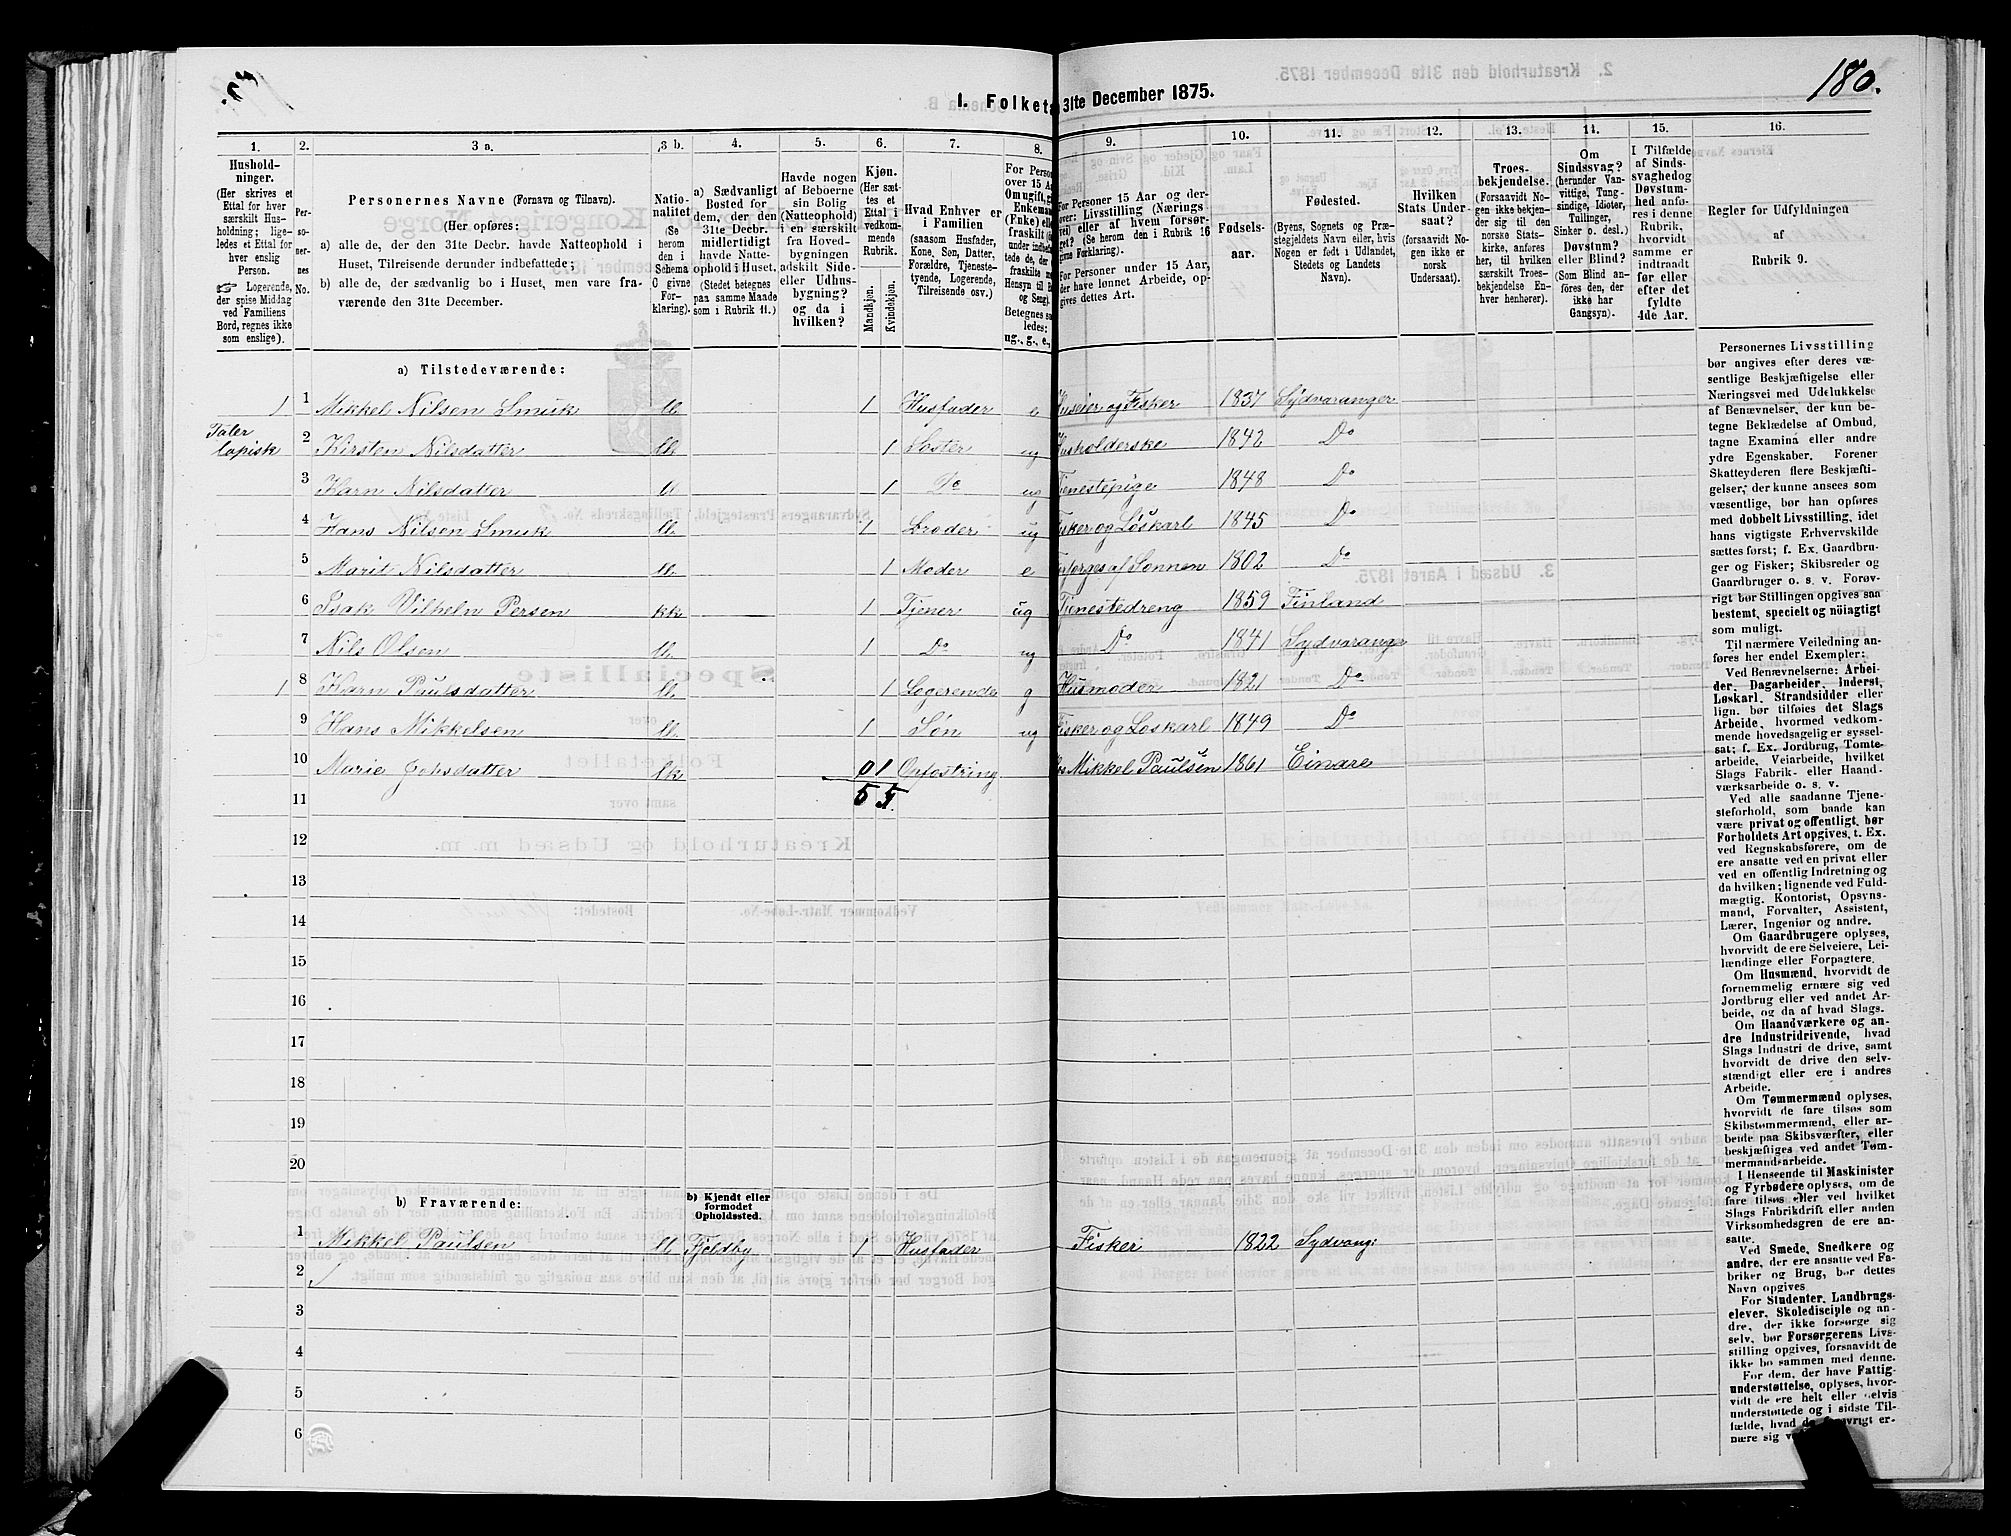 180.
1. Folketa 31te December 1875.
1. 2. 3 a. 3 b. 4. 5. 6. 7. 8. 9. 10. 11. 12. 13. 14. 15. 16.
Hushold-
ninger.
(Her skrives et
Ettal for hver
særskilt Hus-
holdning; lige-
ledes et Ettal for
hver enslig
Person.
Logerende,
der spise Middag
ved Familiens
Bord, regnes ikke
som enslige).
Per-
so-
ner-
nes
No.
Personernes Navne (Fornavn og Tilnavn).
(Her opføres:
a) alle de, der den 31te Decbr. havde Natteophold i
Huset, Tilreisende derunder indbefattede;
b) alle de, der sædvanlig bo i Huset, men vare fra-
værende den 31te December.
Natio-
nalitet
(Se
herom
den i
Schema
C givne
For-
klaring).
a) Sædvanligt
Bosted for
dem, der den
31te Decbr.
midlertidigt
havde Natte-
ophold i Huset.
(Stedet betegnes
paa samme Maade
som i Rubrik 11.)
Havde nogen
af Beboerne
sin Bolig
(Natteophold)
i en særskilt
fra Hoved-
bygningen
adskilt Side-
eller Udhus-
bygning?
og da i
hvilken?
Kjøn.
(Her sæt-
tes et
Ettal i
vedkom-
mende
Rubrik.
Mandkjøn.
Kvindekjøn.
Hvad Enhver er
i Familien
(saasom Husfader,
Kone, Søn, Datter,
Forældre, Tjeneste-
tyende, Logerende,
Tilreisende osv.)
For Perso
over 15 Aa
Om ugift, g
Enkeman
(Enke) ell
fraskilt
og Seng).
Betegnes sa
ledes:
ug., g., e.,
For Personer 15 Aar og der-
over: Livsstilling (Nærings
vei) eller af hvem forsør-
get? (Se herom den i Rubrik 16
givne Forklaring).
For Personer under 15 Aar,
der have lønnet Arbeide, op-
gives dettes Art.
Fødsels-
aar.
Fødested.
(Byens, Sognets og Præ-
stegjeldets Navn eller, hvis
Nogen er født i Udlandet,
Stedets og Landets
Navn).
Hvilken
Stats Under-
saat?
(forsaavidt No-
gen ikke er
norsk
Undersaat).
Troes-
bekjendelse.
(Forsaavidt No-
gen ikke bekjen-
der sig til den
norske Stats-
kirke, anføres
her, til hvilken
særskilt Troes-
bekjendelse En-
hver henhører).
Om
Sindssvag?
(herunder Van-
vittige, Tung-
sindige, Idioter,
Tullinger,
Sinker o. desl.)
Døvstum?
eller Blind?
(Som Blind an-
føres den, der
ikke har
Gangsyn).
I Tilfælde
af Sinds-
svaghed og
Døvstum-
hed anfø-
res i denne
Rubrik,
hvorvidt
samme er
indtraadt
før eller
efter det
fyldte
4de Aar.
Regler for Udfyldningen
af
Rubrik 9.
a) Tilstedeværende:
1 1 Mikkel Nilsen Smuk ll. 1 Husfader e Huseier og Fisker 1837 Sydvaranger
Taler
lapisk
2 Kirsten Nilsdatter ll. 1 Søster ug Husholderske 1842 Do
3 Karn Nilsdatter ll 1 Do ug Tjenestepige 1848 Do
4 Hans Nilsen Smuk ll. 1 Broder ug Fisker og Løskarl 1845 Do
5 Marit Nilsdatter ll. 1 Moder e Forsørges af Sønnen 1802 Do
6 Isak Vilhelm Persen kk 1 Tjener ug Tjenestedreng 1859 Finland
7 Nils Olsen ll. 1 Do ug Do 1841 Sydvaranger
1 8 Karn Paulsdatter ll. 1 Logerende g Husmoder 1821 Do
9 Hans Mikkelsen ll. 1 Søn ug Fisker og Løskarl 1849 Do
10 Marie Johsdatter lk 0 1 Opfostring hos Mikkel Paulsen 1861 Einare
11 5 5
12
13
14
15
16
17
18
19
20
b) Fraværende:
b) Kjendt eller
formodet
Opholdssted.
1 Mikkel Paulsen ll Fjeldby 1 Husfader Fisker 1822 Sydvang:
2
3
4
5
6
Personernes Livsstilling
bør angives efter deres væ-
sentlige Beskjæftigelse eller
Næringsvei med Udelukkelse
af Benævnelser, der kun be-
tegne Beklædelse af Ombud,
tagne Examina eller andre
ydre Egenskaber. Forener
Skatteyderen flere Beskjæfti-
gelser, der kunne ansees som
væsentlige, bør han opføres
med dobbelt Livsstilling, idet
hans vigtigste Erhvervskilde
sættes først; f. Ex. Gaardbru-
ger og Fisker; Skibsreder og
Gaardbruger o. s. v. Forøv-
rigt bør Stillingen opgives saa
bestemt, specielt og nøiagtigt
som muligt.
Til nærmere Veiledning an-
føres her endel Exempler:
Ved Benævnelserne: Arbei-
der, Dagarbeider, Inderst,
Løskarl, Strandsidder eller
lign. bør tilføies det Slags
Arbeide, hvormed vedkom-
mende hovedsagelig er syssel-
sat; f. Ex. Jordbrug, Tomte-
arbeide, Veiarbeide, hvilket
Slags Fabrik- eller Haand-
værksarbeide o. s. v.
Ved alle saadanne Tjene-
steforhold, som baade kan
være privat og offentligt, bør
Forholdets Art opgives, t. Ex.
ved Regnskabsførere, om de
ere ansatte ved en privat eller
ved en offentlig Indretning og
da hvilken; lignende ved Fuld-
mægtig, Kontorist, Opsyns-
mand, Forvalter, Assistent,
Lærer, Ingeniør og andre.
Om Gaardbrugere oplyses,
hvorvidt de ere Selveiere, Lei-
lændinge eller Forpagtere.
Om Husmænd, hvorvidt de
fornemmelig ernære sig ved
Jordbrug eller ved andet Ar-
beide, og da af hvad Slags.
Om Haandværkere og an-
dre Industridrivende, hvad
Slags Industri de drive, samt
hvorvidt de drive den selv-
stændigt eller ere i andres
Arbeide.
Om Tømmermænd oplyses,
hvorvidt de fare tilsøs som
Skibstømmermænd, eller ar-
beide paa Skibsværfter, eller
beskjæftiges ved andet Tøm-
mermandsarbeide.
I Henseende til Maskinister
og Fyrbødere oplyses, om de
fare tilsøs eller ved hvilket
Slags Fabrikdrift eller anden
Virksomhedsgren de ere an-
satte.
Ved Smede, Snedkere og
andre, der ere ansatte ved Fa-
briker og Brug, bør dettes
Navn opgives
For Studenter, Landbrugs-
elever, Skoledisciple og an-
dre, der ikke forsørge sig
selv, bør Forsørgerens Livs-
stilling opgives, forsaavidt de
ikke bo sammen med denne.
For dem, der have Fattig-
understøttelse, oplyses, hvor-
vidt de ere helt eller delvis
understøttede og i sidste Til-
fælde, hvad de forøvrigt er-
nære sig v